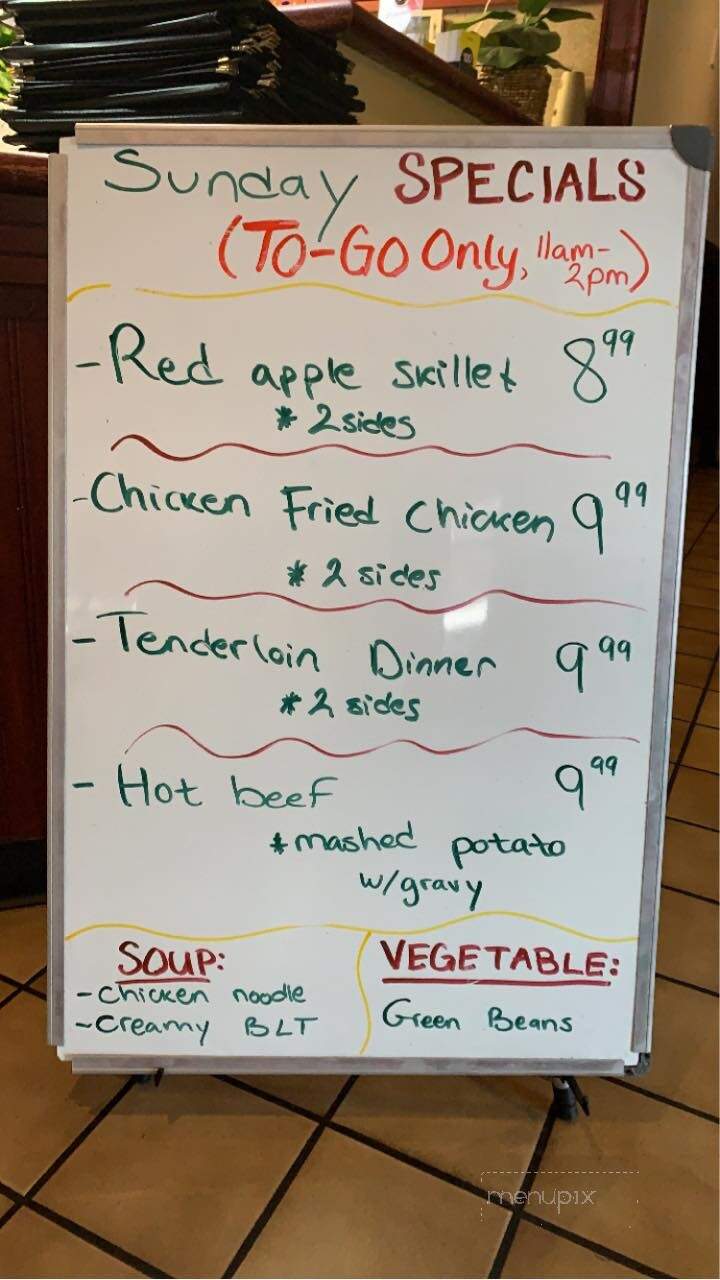 Sunday SPECIALS
(TO-GO Only, 11am-
2pm)
- Red apple skillet 8 99
* 2 sides
- Chicken Fried Chicken 9 99
* 2 sides
- Tenderloin Dinner 9 99
* 2 sides
- Hot beef 9 99
* mashed potato
w/gravy
SOUP:
- Chicken noodle
- Creamy BLT
VEGETABLE:
Green Beans
menupix